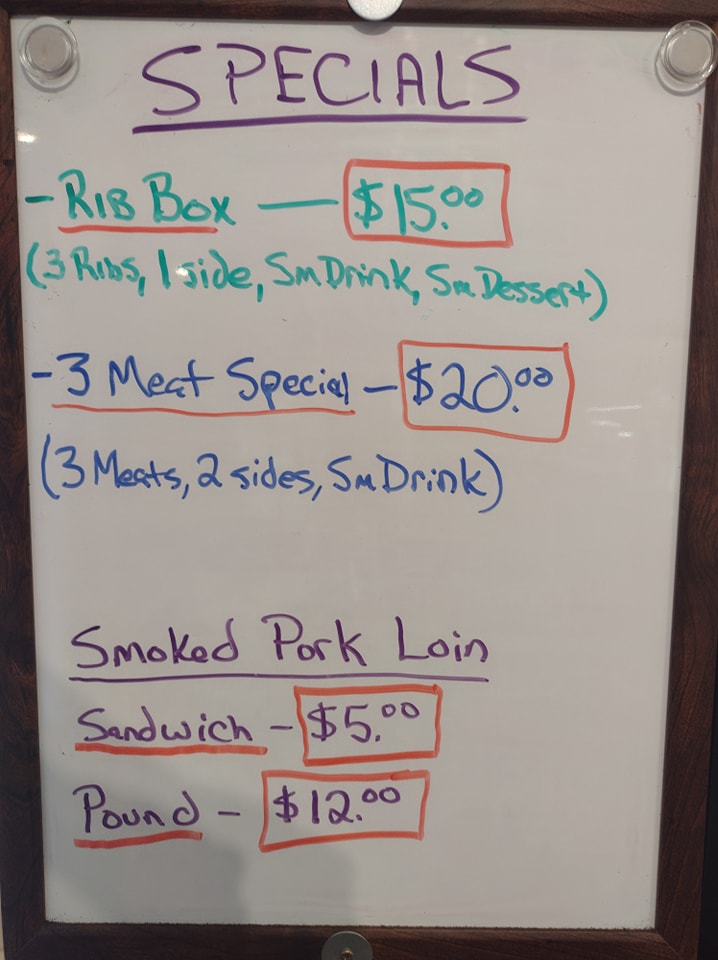 SPECIALS
- RIB BOX — $15.00
(3 Ribs, 1 side, Sm Drink, Sm Dessert)
- 3 Meat Special - $20.00
(3 Meats, 2 sides, Sm Drink)
Smoked Pork Loin
Sandwich - $5.00
Pound - $12.00